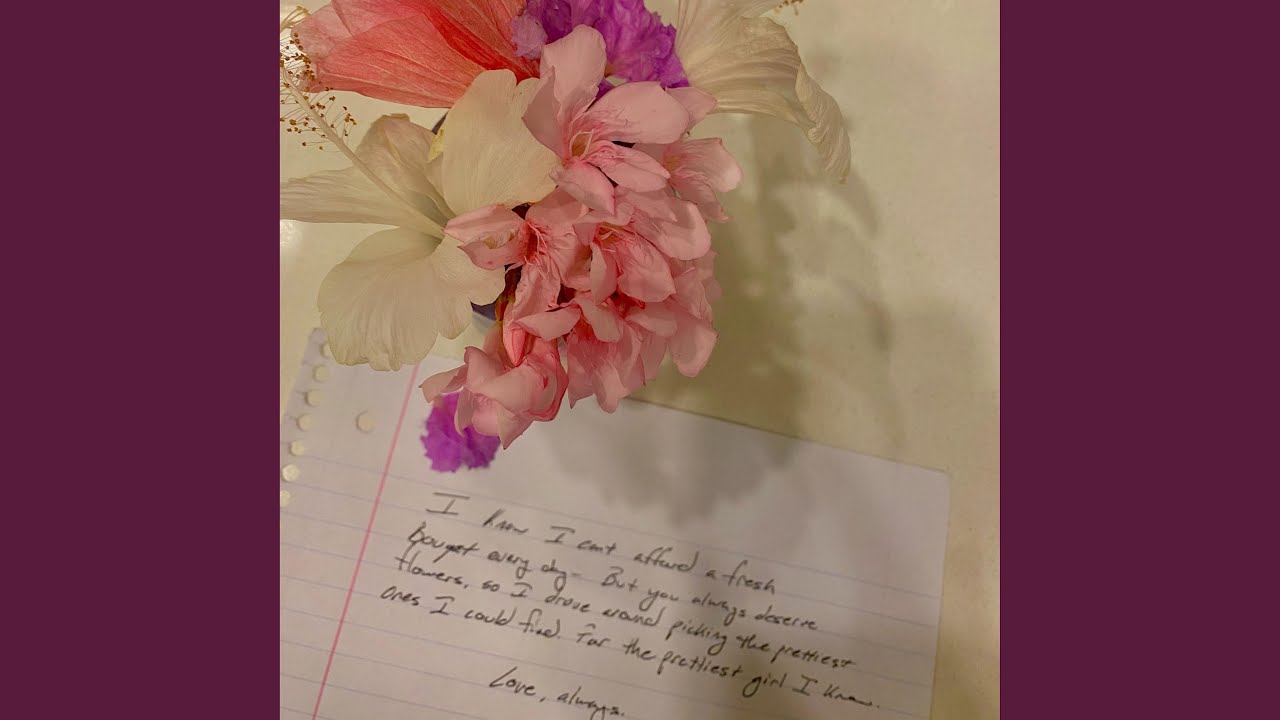 I know I can't afford a fresh
Bouqet every day- But you always deserve
flowers, so I drove around picking the prettiest
ones I could find. For the prettiest girl I know.
Love, always.